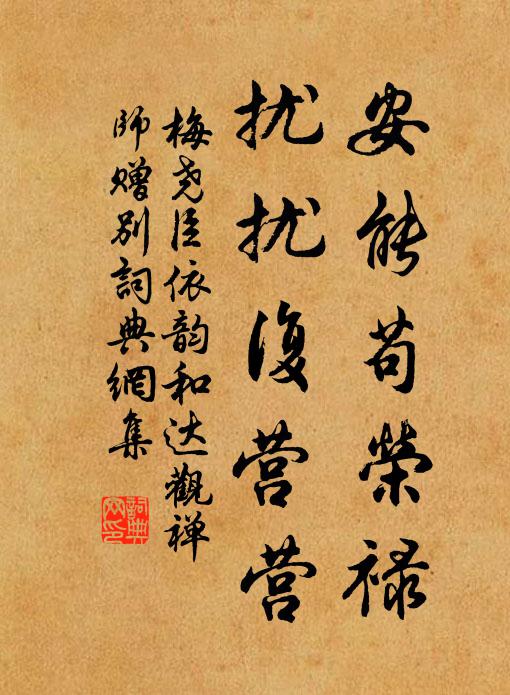 安能苟荣禄
扰扰复营营
梅尧臣依韵和达觀禅
师赠别詞典網集
詞典
网印